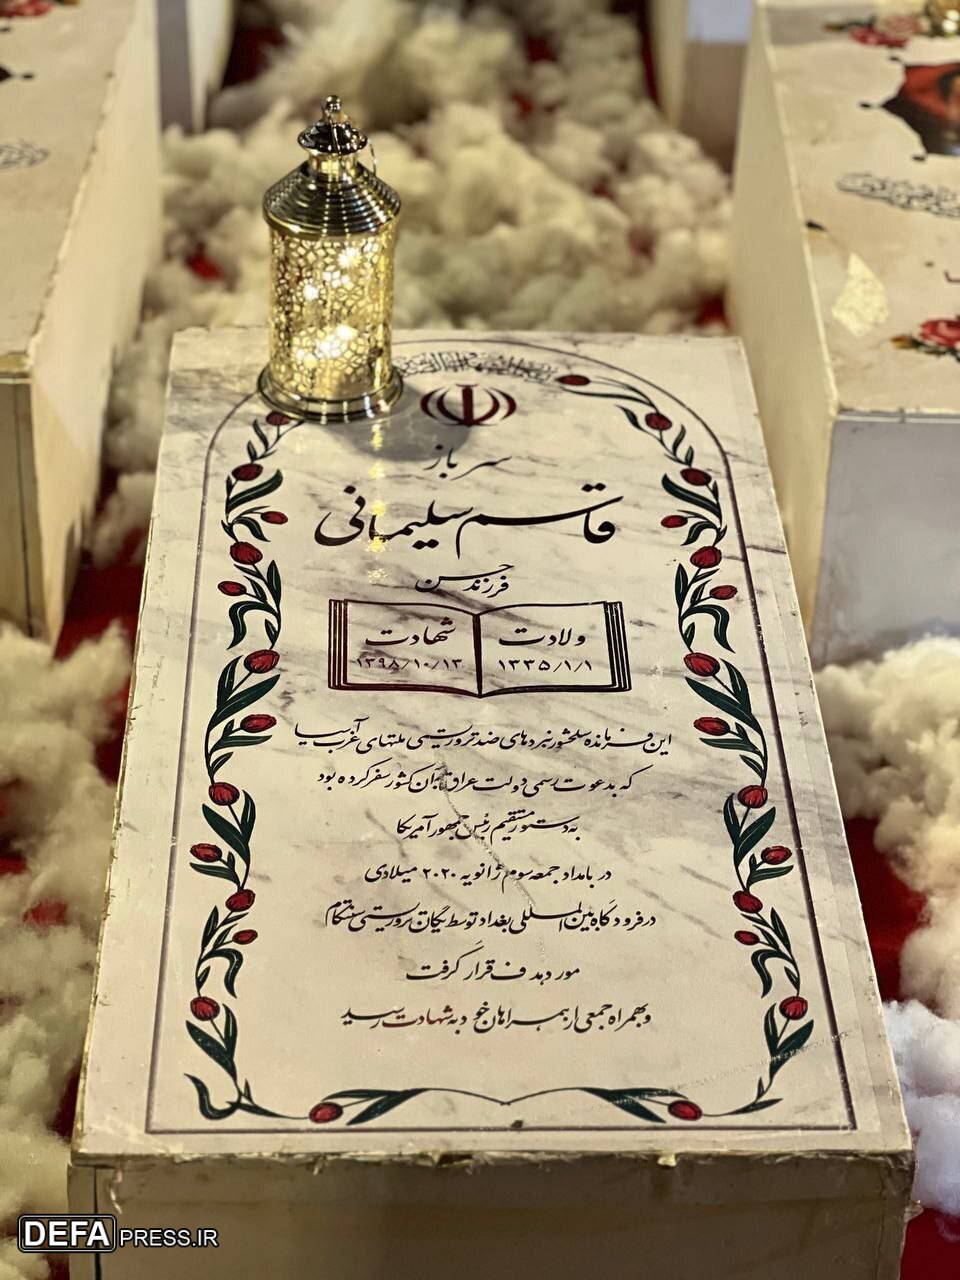 سرباز
قاسم سلیمانی
فرزند حسن
ولادت
۱۳۳۵/۱/۱
شهادت
۱۳۹۸/۱۰/۱۳
این فرمانده سلحشور نبردهای ضد تروریستی ملتهای غرب آسیا
که بدعوت رسمی دولت عراق به آن کشور سفر کرده بود
به دستور مستقیم رئیس جمهور آمریکا
در بامداد جمعه سوم ژانویه ۲۰۲۰ میلادی
در فرودگاه بین المللی بغداد توسط یگان تروریستی سنتکام
مورد هدف قرار گرفت
و بهمراه جمعی از همراهان خود به شهادت رسید
DEFAPRESS.IR